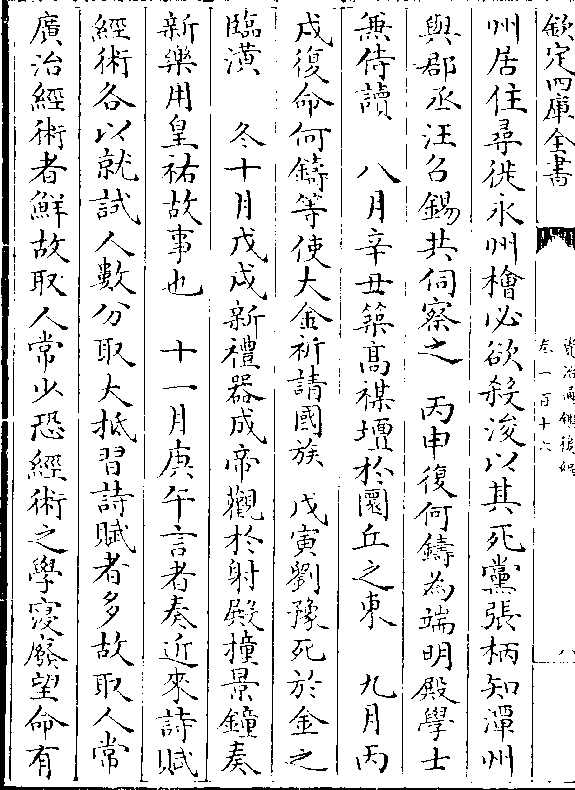 欽定四庫全書
資治通鑑後編
卷一百十六
八
州居住尋徙永州檜必欲殺浚以其死黨張柄知潭州
與郡丞汪召錫共伺察之　丙申復何鑄為端明殿學士
兼侍讀　八月辛丑築髙禖壇於圜丘之東　九月丙
戍復命何鑄等使大金祈請國族　戊寅劉豫死於金之
臨潢　冬十月戊戍新禮器成帝觀於射殿撞景鐘奏
新樂用皇祐故事也　十一月庚午言者奏近來詩賦
經術各以就試人數分取大抵習詩賦者多故取人常
廣治經術者鮮故取人常少恐經術之學寖廢望命有